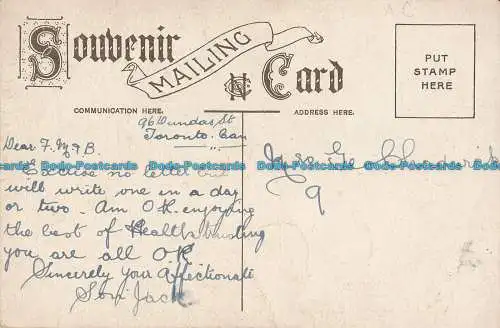 Souvenir
MAILING
Card
PUT
STAMP
HERE
COMMUNICATION HERE.
ADDRESS HERE.
96 Dundas St
Toronto. Can
Dear F. M & B.
Excuse no letter but
will write one in a day
or two. Am O.K. enjoying
the best of Health & trusting
you are all OK
Sincerely Your Affectionate
Son Jack
9
Bodo-Postcards Bodo-Postcards Bodo-Postcards Bodo-Postcards